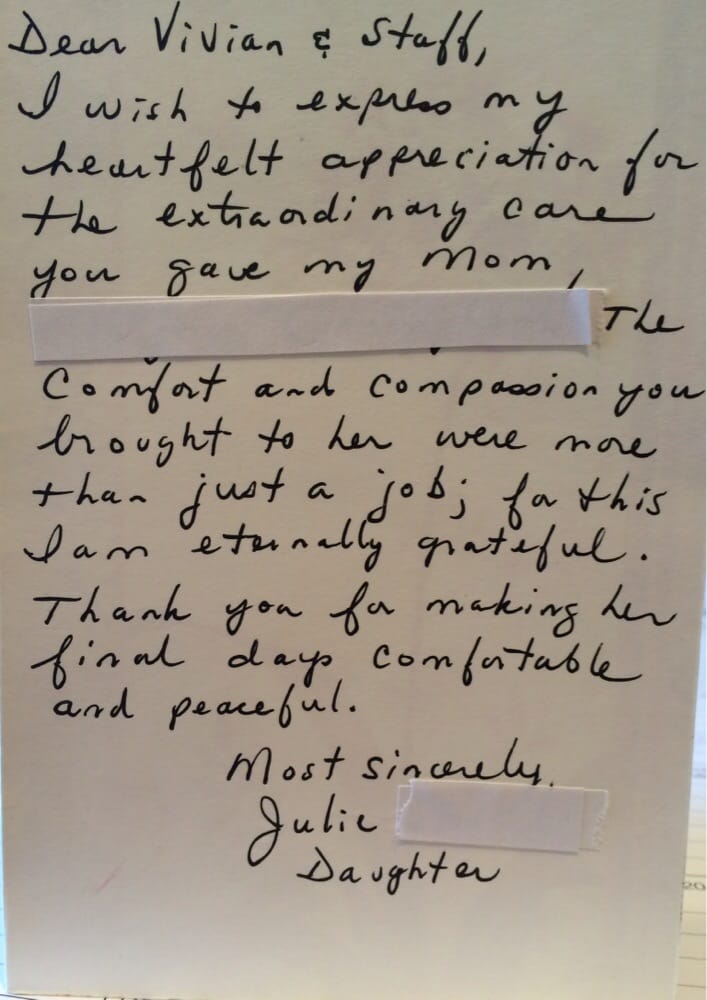 Dear Vivian & Staff,
I wish to express my
heartfelt appreciation for
the extraordinary care
you gave my Mom,
The
Comfort and compassion you
brought to her were more
than just a job; for this
I am eternally grateful.
Thank you for making her
final days comfortable
and peaceful.
Most sincerely,
Julie
Daughter
20